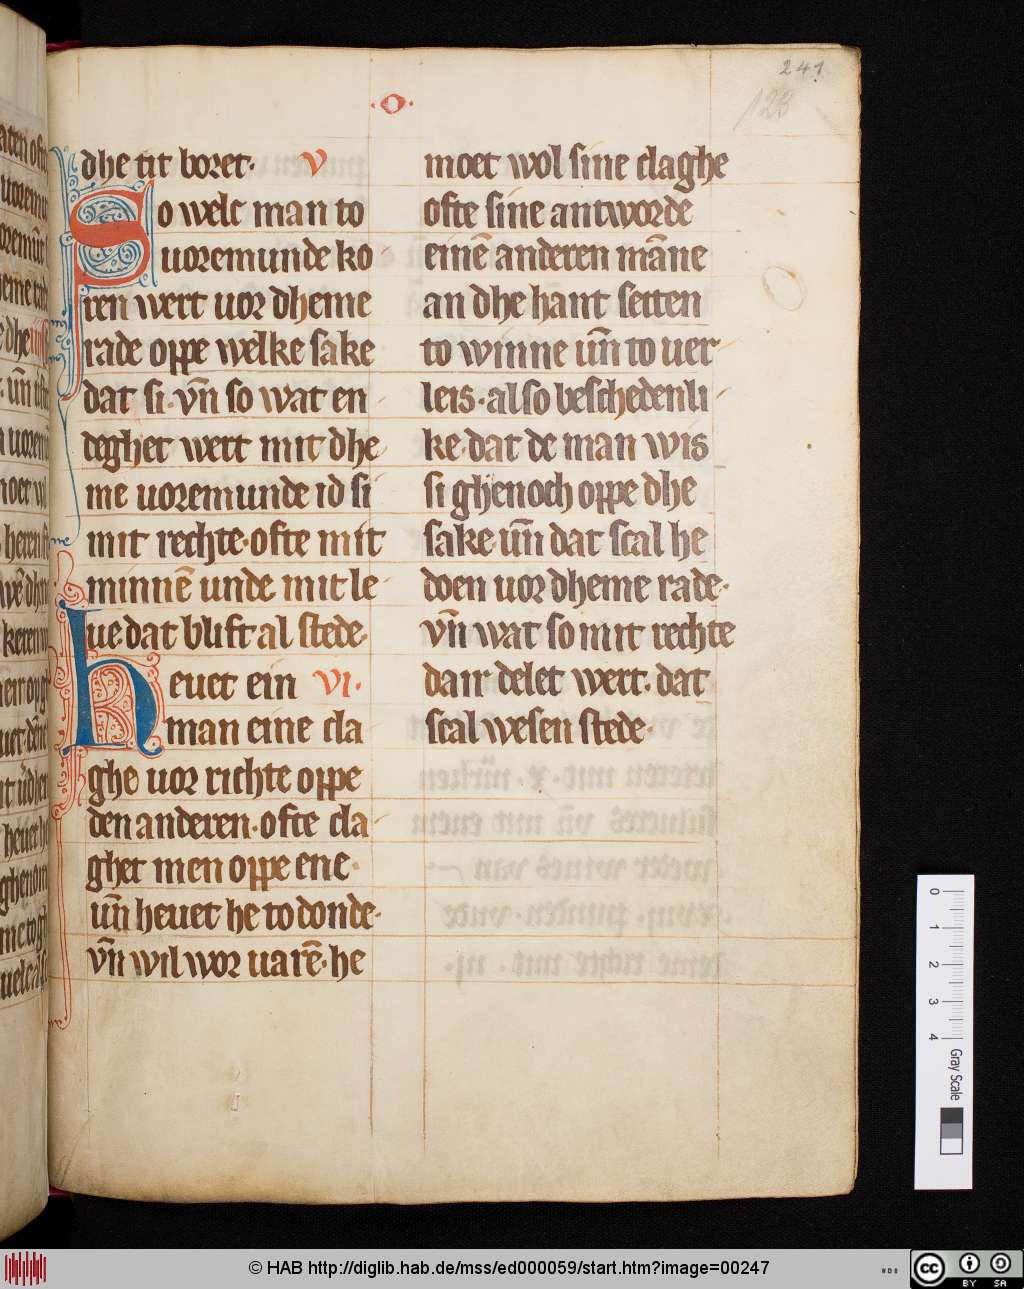 241
123
·O·
dhe tit boret· V
So welc man to
uoremunde ko
ren wert uor dheme
rade oppe welke sake
dat si· vn̄ so wat en
deghet wert mit dhe
me uoremunde id si
mit rechte· ofte mit
minnē unde mit le
ue· dat blift al stede·
heuet ein VI·
man eine cla
ghe uor richte oppe
den anderen· ofte cla
ghet men oppe ene·
un̄ heuet he to donde·
vn̄ wil wor uarē· he
moet wol sine claghe
ofte sine antworde
einē anderen māne
an dhe hant setten
to winne un̄ to uer
leis· also beschedenli
ke· dat de man wis
si ghenoch oppe dhe
sake· un̄ dat scal he
doen uor dheme rade·
vn̄ wat so mit rechte
dair delet wert· dat
scal wesen stede·
0 1 2 3 4
Gray Scale
© HAB http://diglib.hab.de/mss/ed000059/start.htm?image=00247
WDB
cc BY SA